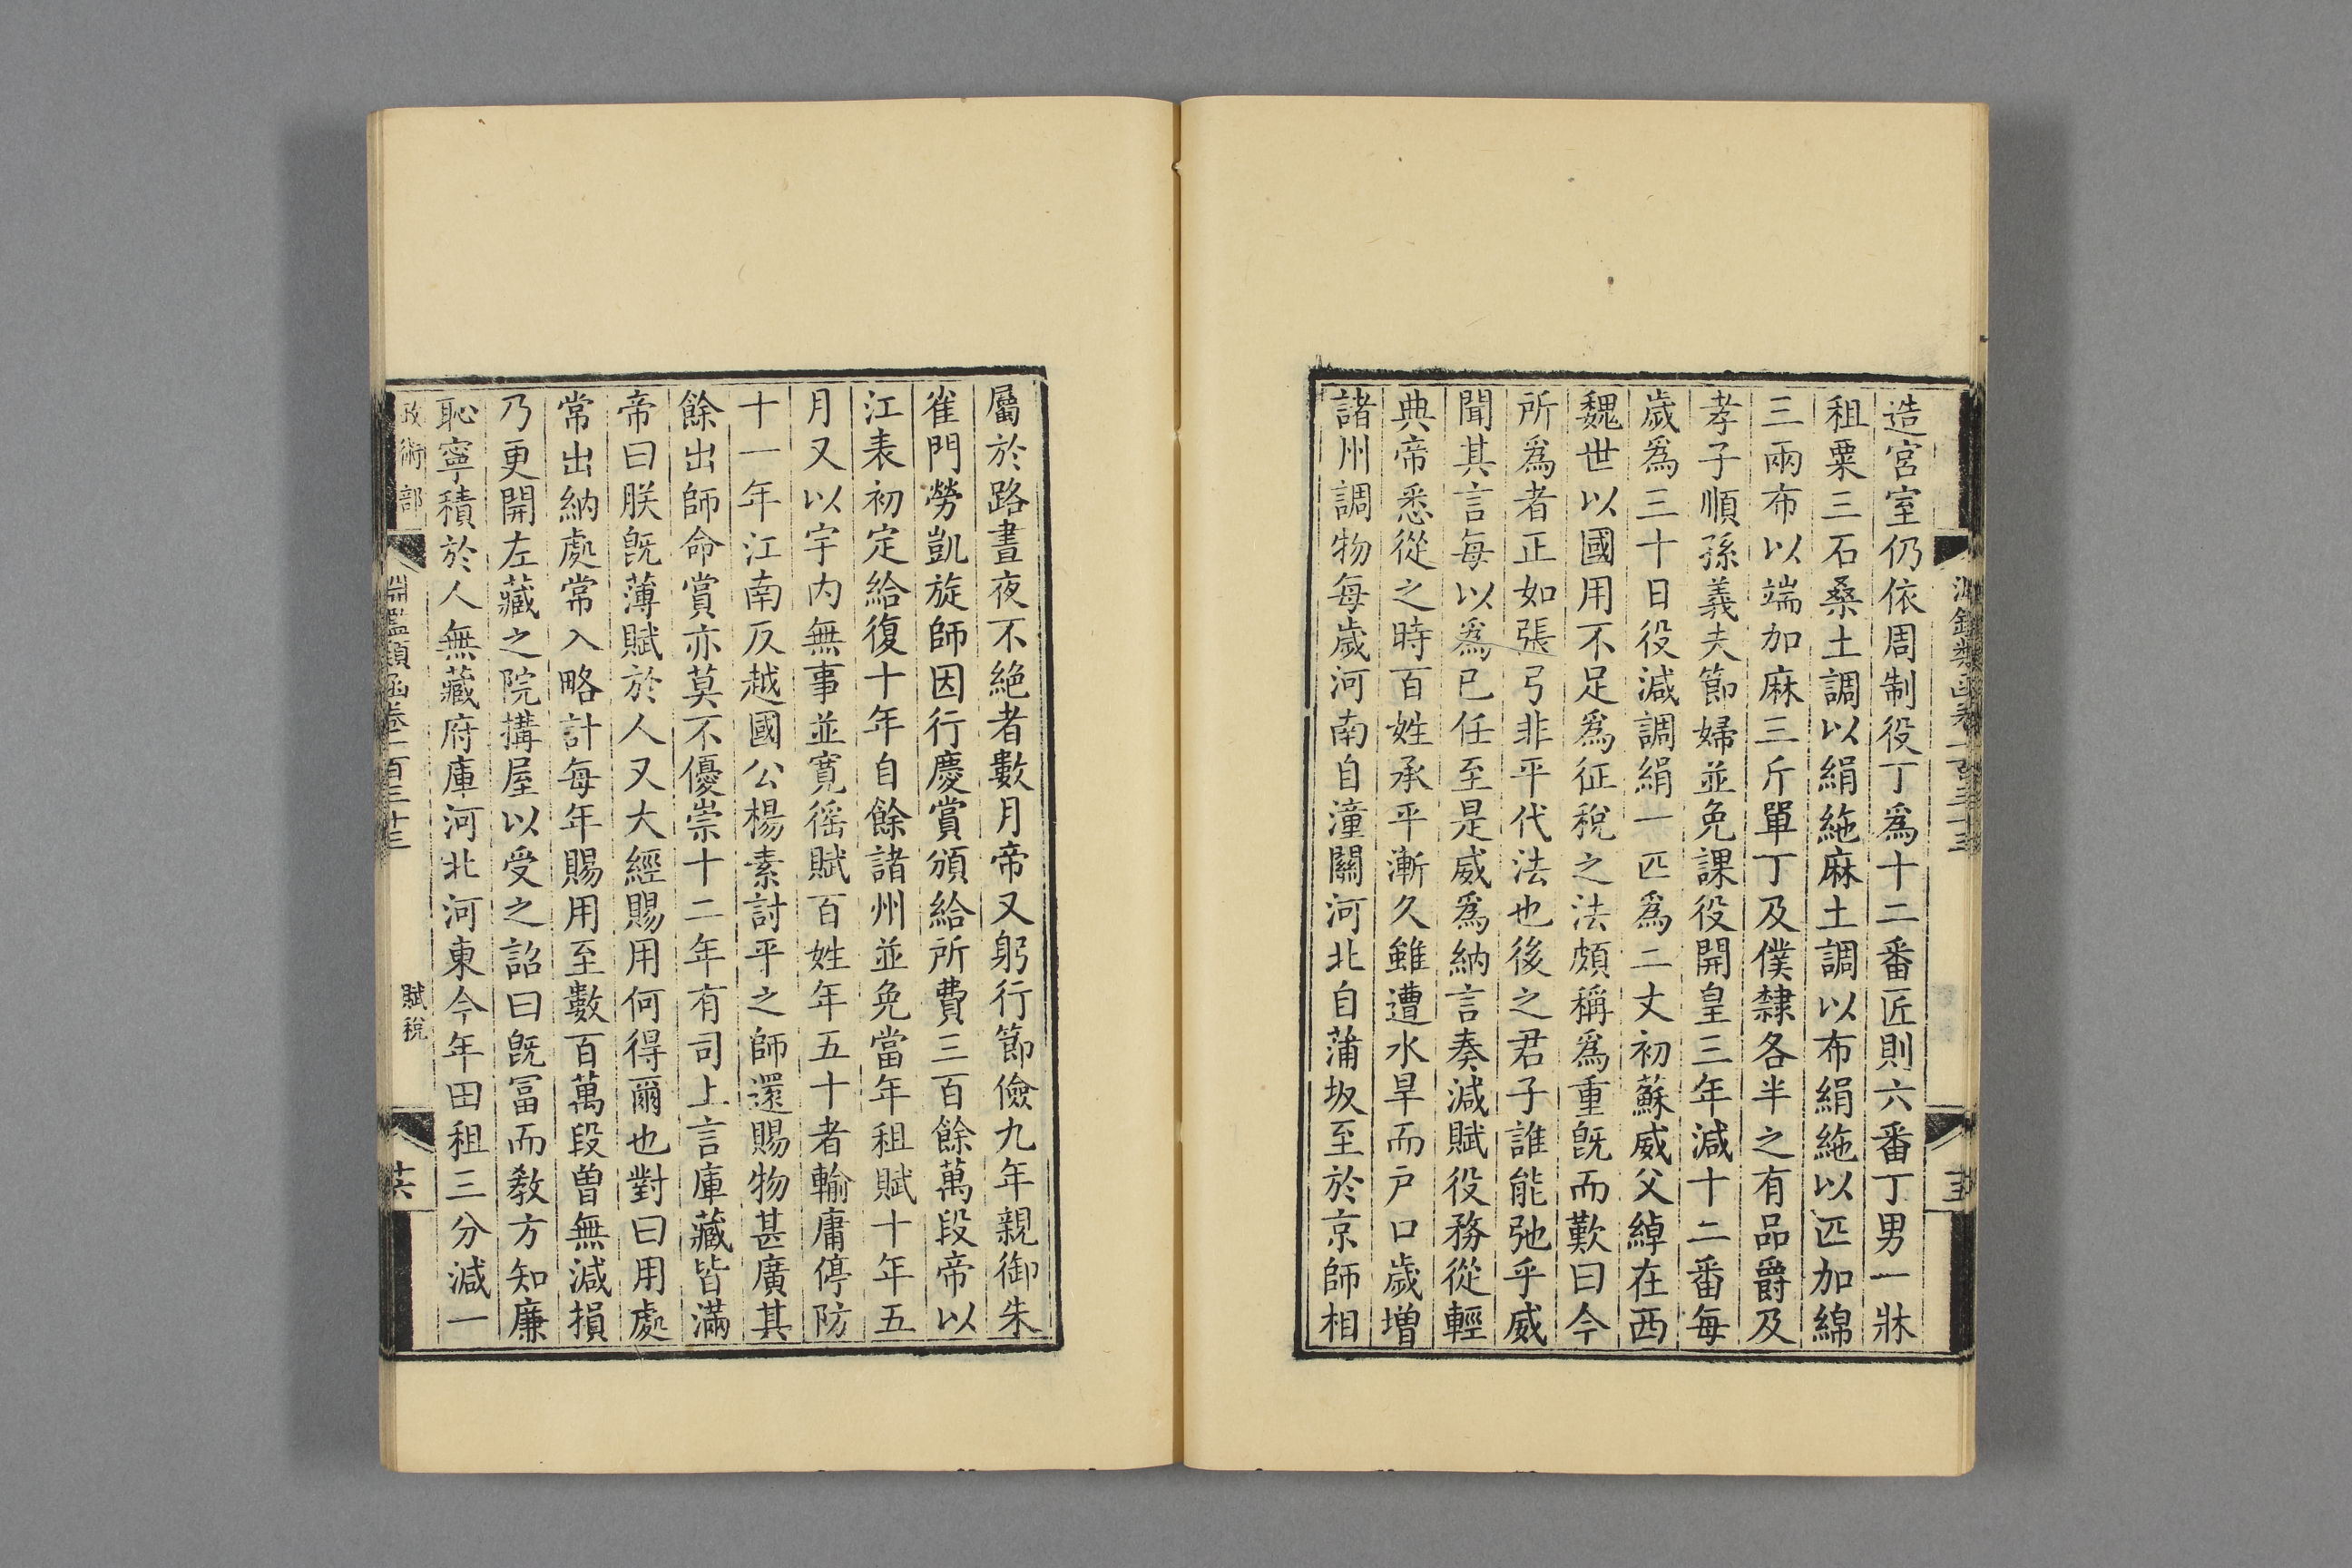 造宮室仍依周制役丁爲十二番匠則六番丁男一牀
租粟三石桑土調以絹絁麻土調以布絹絁以匹加綿
三兩布以端加麻三斤單丁及僕隸各半之有品爵及
孝子順孫義夫節婦並免課役開皇三年減十二番每
歲爲三十日役減調絹一匹爲二丈初蘇威父綽在西
魏世以國用不足爲征稅之法頗稱爲重旣而歎曰今
所爲者正如張弓非平代法也後之君子誰能弛乎威
聞其言每以爲已任至是威爲納言奏減賦役務從輕
典帝悉從之時百姓承平漸久雖遭水旱而戸口歲增
諸州調物每歲河南自潼關河北自蒲坂至於京師相
屬於路晝夜不絕者數月帝又躬行節儉九年親御朱
雀門勞凱旋師因行慶賞頒給所費三百餘萬段帝以
江表初定給復十年自餘諸州並免當年租賦十年五
月又以宇内無事並寛徭賦百姓年五十者輸庸停防
十一年江南反越國公楊素討平之師還賜物甚廣其
餘出師命賞亦莫不優崇十二年有司上言庫藏皆滿
帝曰朕旣薄賦於人又大經賜用何得爾也對曰用處
常出納處常入略計每年賜用至數百萬段曽無減損
乃更開左藏之院搆屋以受之詔曰旣冨而敎方知廉
恥寧積於人無藏府庫河北河東今年田租三分減一
政術部
淵鑑類函卷一百三十三
賦稅